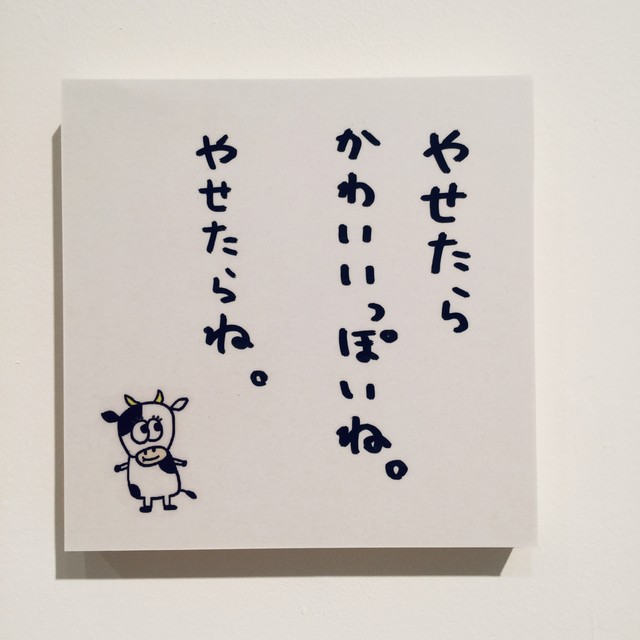 やせたら
かわいいっぽいね。
やせたらね。